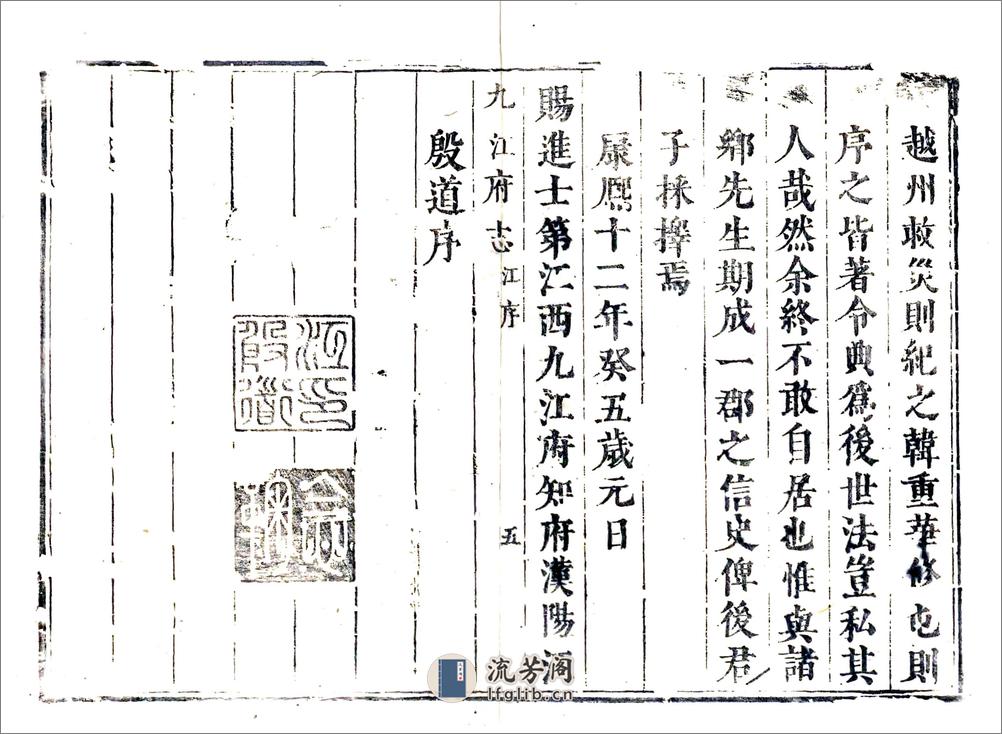 越州救災則紀之韓重華修屯則
序之皆著令典爲後世法豈私其
人哉然余終不敢自居也惟與諸
鄉先生期成一郡之信史俾後君
子採擇焉
康熙十二年癸丑歲元日
賜進士第江西九江府知府漢陽江
九江府志 江序 五
殷道序
江印殷道
流芳阁
lfglib.cn